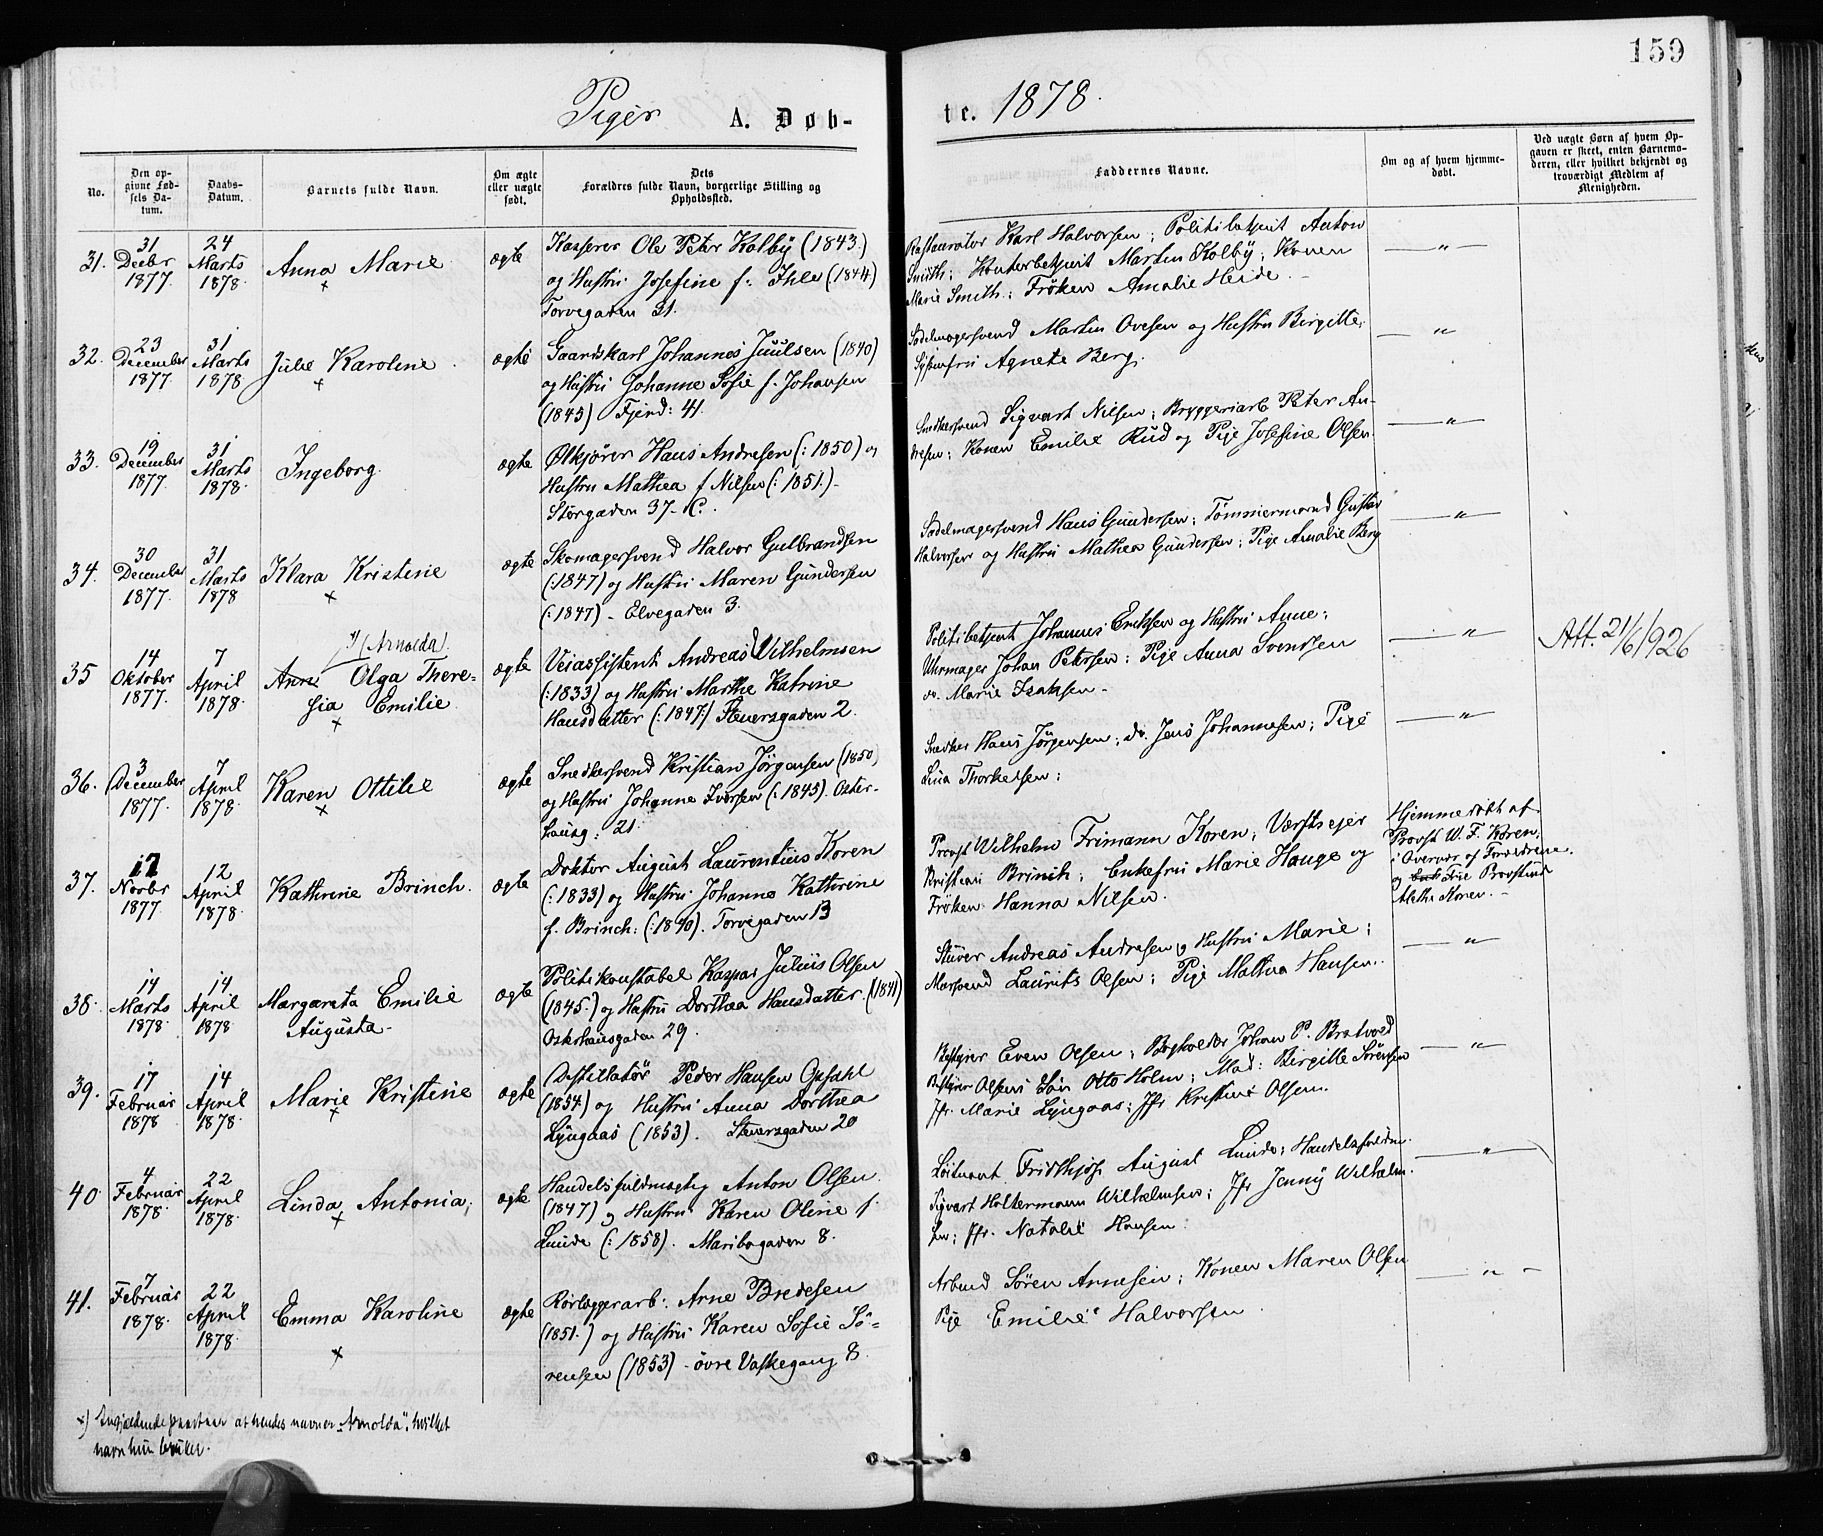 159
Piger A. Døb-
te. 1878.
No.
Den op-
givne Fød-
sels Da-
tum.
Daabs-
Datum.
Barnets fulde Navn.
Om ægte
eller uægte
født.
Dets
Forældres fulde Navn, borgerlige Stilling og
Opholdssted.
Faddernes Navne.
Om og af hvem hjemme-
døbt.
Ved uægte Børn af hvem Op-
gaven er skeet, enten Barnemo-
deren, eller hvilket bekjendt og
troværdigt Medlem af
Menigheden.
31.
31
Decbr
1877.
24
Marts
1878.
Anna Marie
+
ægte
Kasserer Ole Peter Kolby (1843.)
og Hustru Josefine f. Ihle (:1844)
Torvegaden 31.
Restauratør Karl Halvorsen; Politibetjent Anton
Smith; Kontorbetjent Martin Kolby; Konen
Marie Smith; Frøken Amalie Heide. -
— " —
32.
23
December
1877.
31
Marts
1878
Julie Karoline
+
ægte
Gaardskarl Johannes Juulsen (1840)
og Hustru Johanne Sofie f. Johansen
(1845) Fjerd: 41.
Sadelmagersvend Martin Ovesen og Hustru Birgitte;
Agnete Berg.
— " —
33.
19
December
1877.
31
Marts
1878
Ingeborg.
ægte
Ølkjører Hans Andresen (: 1850) og
Hustru Mathea f Nilsen (: 1851.) -
Storgaden 37 - C.
Snedkersvend Sigvart Nilsen; Bryggeriarb Peter An-
dresen; Konen Emilie Rud og Pige Josefine Olsen.
— " —
34.
30
December
1877.
31
Marts
1878
Klara Kristine
+
ægte
Skomagersvend Halvor Gulbrandsen
(:1847) og Hustru Maren Gundersen
(:1847) - Elvegaden 3.
Sadelmagersvend Hans Gundersen; Tømmermand Gustav
Halvorsen og Hustru Mathea Gundersen; Pige Amalie Berg
— " —
35
14
Oktober
1877.
7
April
1878.
x) (Arnolda).
Anne Olga There-
sia Emilie.
+
ægte
Veiassistent Andreas Vilhelmsen
(:1833) og Hustru Marthe Katrine
Hansdatter (:1847) Steversgaden 2.
Politibetjent Johannes Eriksen og Hustru Anne;
Uhrmager Johan Petersen; Pige Anna Svendsen
do. Marie Isaksen -
— " —
Att. 21/6 1926
36.
3
December
1877.
7
April
1878.
Karen Ottilie
+
ægte
Snedkersvend Kristian Jørgensen (1850)
og Hustru Johanne Iversen (:1845). Oster-
hausg: 21.
Snedker Hans Jørgensen; do. Jens Johannesen; Pige
Lina Thorkelsen;
— " —
37.
17
Novbr
1877
12
April
1878.
Kathrine Brinch.
ægte
Doktor August Laurentius Koren
(:1833) og Hustru Johanne Kathrine
f. Brinch: (:1840). Torvegaden 13
Provst Wilhelm Frimann Koren; Værftseier
Kristian Brinch; Enkefru Marie Hauge og
Frøken Hanna Nilsen.
Hjemmedøbt af
Provst W. F. Koren,
i Overvær af Forældrene
og Provstinde
Alethe Koren. -
38.
14
Marts
1878.
14
April
1878
Margareta Emilie
Augusta -
ægte
Politikonstabel Kaspar Julius Olsen
(1845.) og Hustru Dorthea Hansdatter. (1841)
Osterhausgaden 29.
Stuver Andreas Andresen og Hustru Marie;
Laurits Olsen; Pige Mathea Hansen.
— " —
39.
17
Februar
1878
14
April
1878.
Marie Kristine
+
ægte
Destillatør Peder Hansen Opsahl
(1854) og Hustru Anna Dorthea
Lyngaas (1853). Steversgaden 20
Bestyrer Even Olsen; Bogholder Johan P. Bratvold
Bestyrer Olsens Søn Otto Holm; Mad: Birgitte Sørensen
Jfr. Marie Lyngaas; Jfr Kristine Olsen.
— " —
40.
4
Februar
1878.
22
April
1878.
Linda Antonia;
+
ægte
Handelsfuldmægtig Anton Olsen.
(1847) og Hustru Karen Oline f.
Lunde (: 1858). Maribogaden 8.
Løitnant Fridthjof August Lunde; Handelsfuldm.
Sigvart Holtermann Wilhelmsen; Jfr Jenny Wilhelm-
sen; Jfr. Natalie Hansen.
— " —
41.
7
Februar
1878.
22
April
1878.
Emma Karoline
+
ægte
Rørlæggerarb: Arne Bredesen
(1851.) og Hustru Karen Sofie Sø-
rensen (1853) - øvre Vaskegang 8.
Arbmd Søren Arnesen; Konen Maren Olsen
Pige Emilie Halvorsen.
— " —
x) Angjældende paastaar at hendes navn er „Arnolda", hvilket
navn hun bruker.